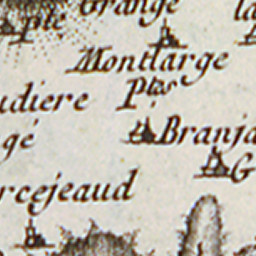 Grange
la
ple
Montlarge
udiere Pl.ͤˢ
gé
Branja
G
rcejeaud